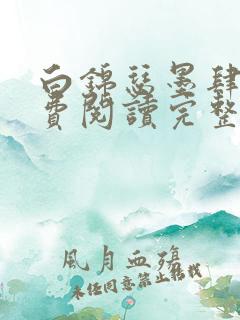 白錦瑟墨肆
費閱讀完整
風月血殤
未经同意禁止转载